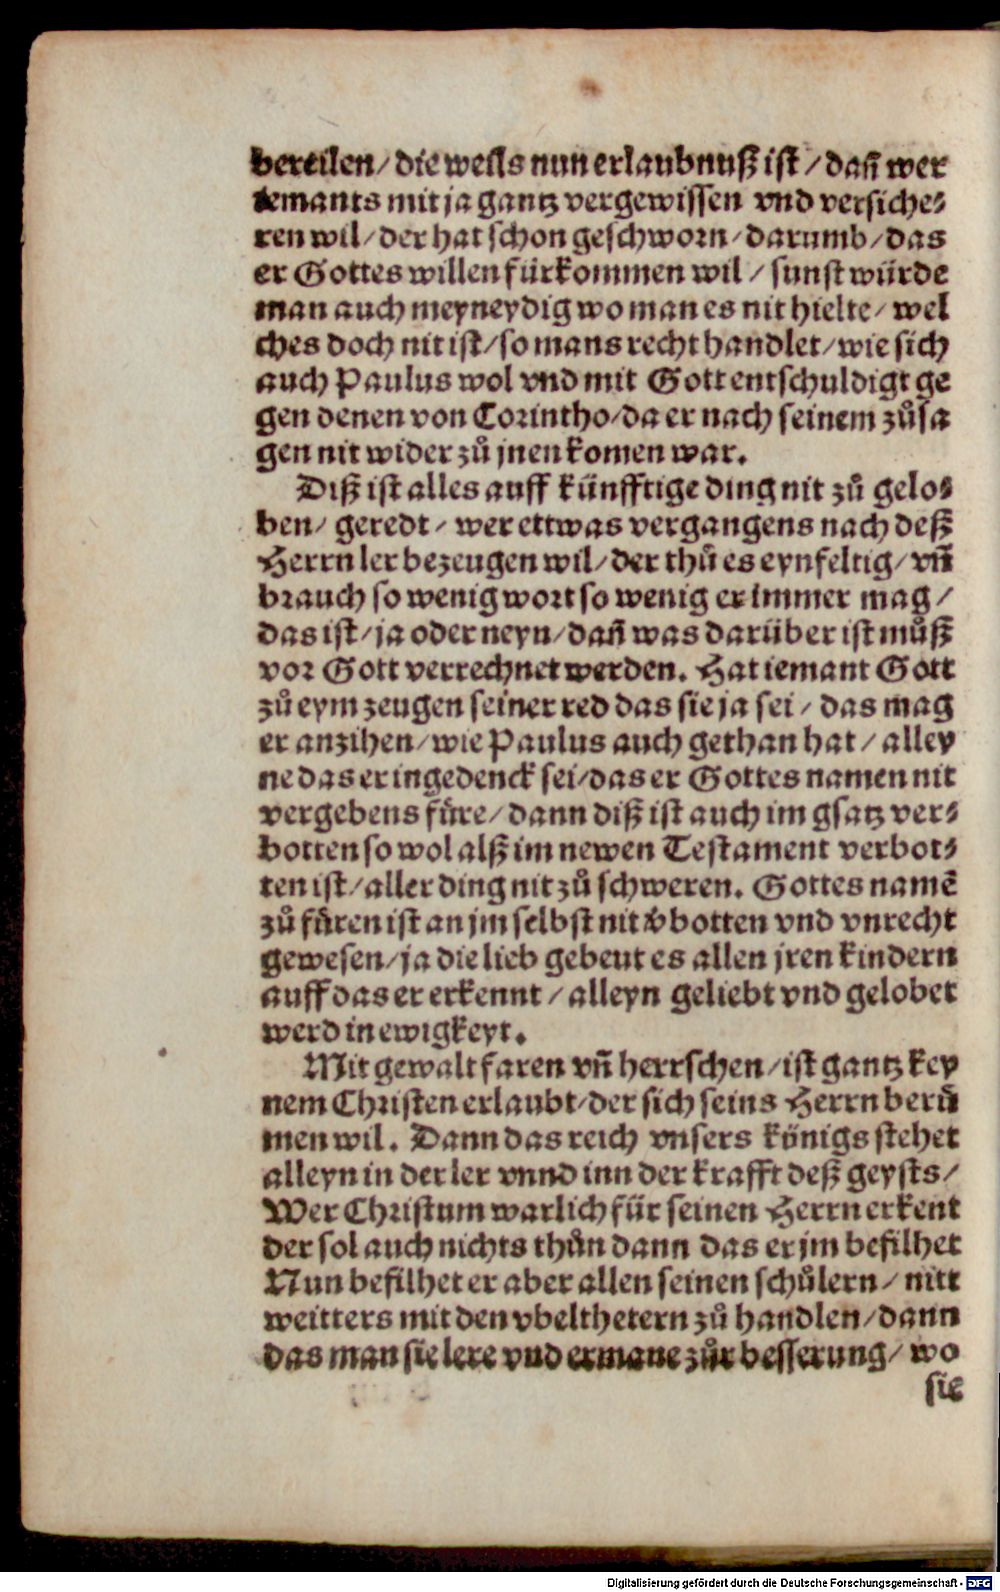 bereilen/ die weils nun erlaubnuß ist/ dañ wer
iemants mit ja gantz vergewissen vnd versiche⸗
ren wil/ der hat schon geschworn/ darumb/ das
er Gottes willen fürkommen wil/ sunst würde
man auch meyneydig wo man es nit hielte/ wel
ches doch nit ist/ so mans recht handlet/ wie sich
auch Paulus wol vnd mit Gott entschuldigt ge
gen denen von Corintho/ da er nach seinem zůsa
gen nit wider zů jnen komen war.
Diß ist alles auff künfftige ding nit zů gelo⸗
ben/ geredt/ wer ettwas vergangens nach deß
Herrn ler bezeugen wil/ der thů es eynfeltig/ vñ
brauch so wenig wort so wenig er immer mag/
das ist/ ja oder neyn/ dañ was darüber ist můß
vor Gott verrechnet werden. Hat iemant Gott
zů eym zeugen seiner red das sie ja sei/ das mag
er anzihen/ wie Paulus auch gethan hat/ alley
ne das er ingedenck sei/ das er Gottes namen nit
vergebens füre/ dann diß ist auch im gsatz ver⸗
botten so wol alß im newen Testament verbot⸗
ten ist/ aller ding nit zů schweren. Gottes namē
zů füren ist an jm selbst nit v̄botten vnd vnrecht
gewesen/ ja die lieb gebeut es allen jren kindern
auff das er erkennt/ alleyn geliebt vnd gelobet
werd in ewigkeyt.
Mit gewalt faren vñ herrschen/ ist gantz key
nem Christen erlaubt/ der sich seins Herrn berů
men wil. Dann das reich vnsers königs stehet
alleyn in der ler vnnd inn der krafft deß geysts/
Wer Christum warlich für seinen Herrn erkent
der sol auch nichts thůn dann das er jm befilhet
Nun befilhet er aber allen seinen schůlern/ nitt
weitters mit den vbelthetern zů handlen/ dann
das man sie lere vnd ermane zůr besserung/ wo
sie
Digitalisierung gefördert durch die Deutsche Forschungsgemeinschaft - DFG